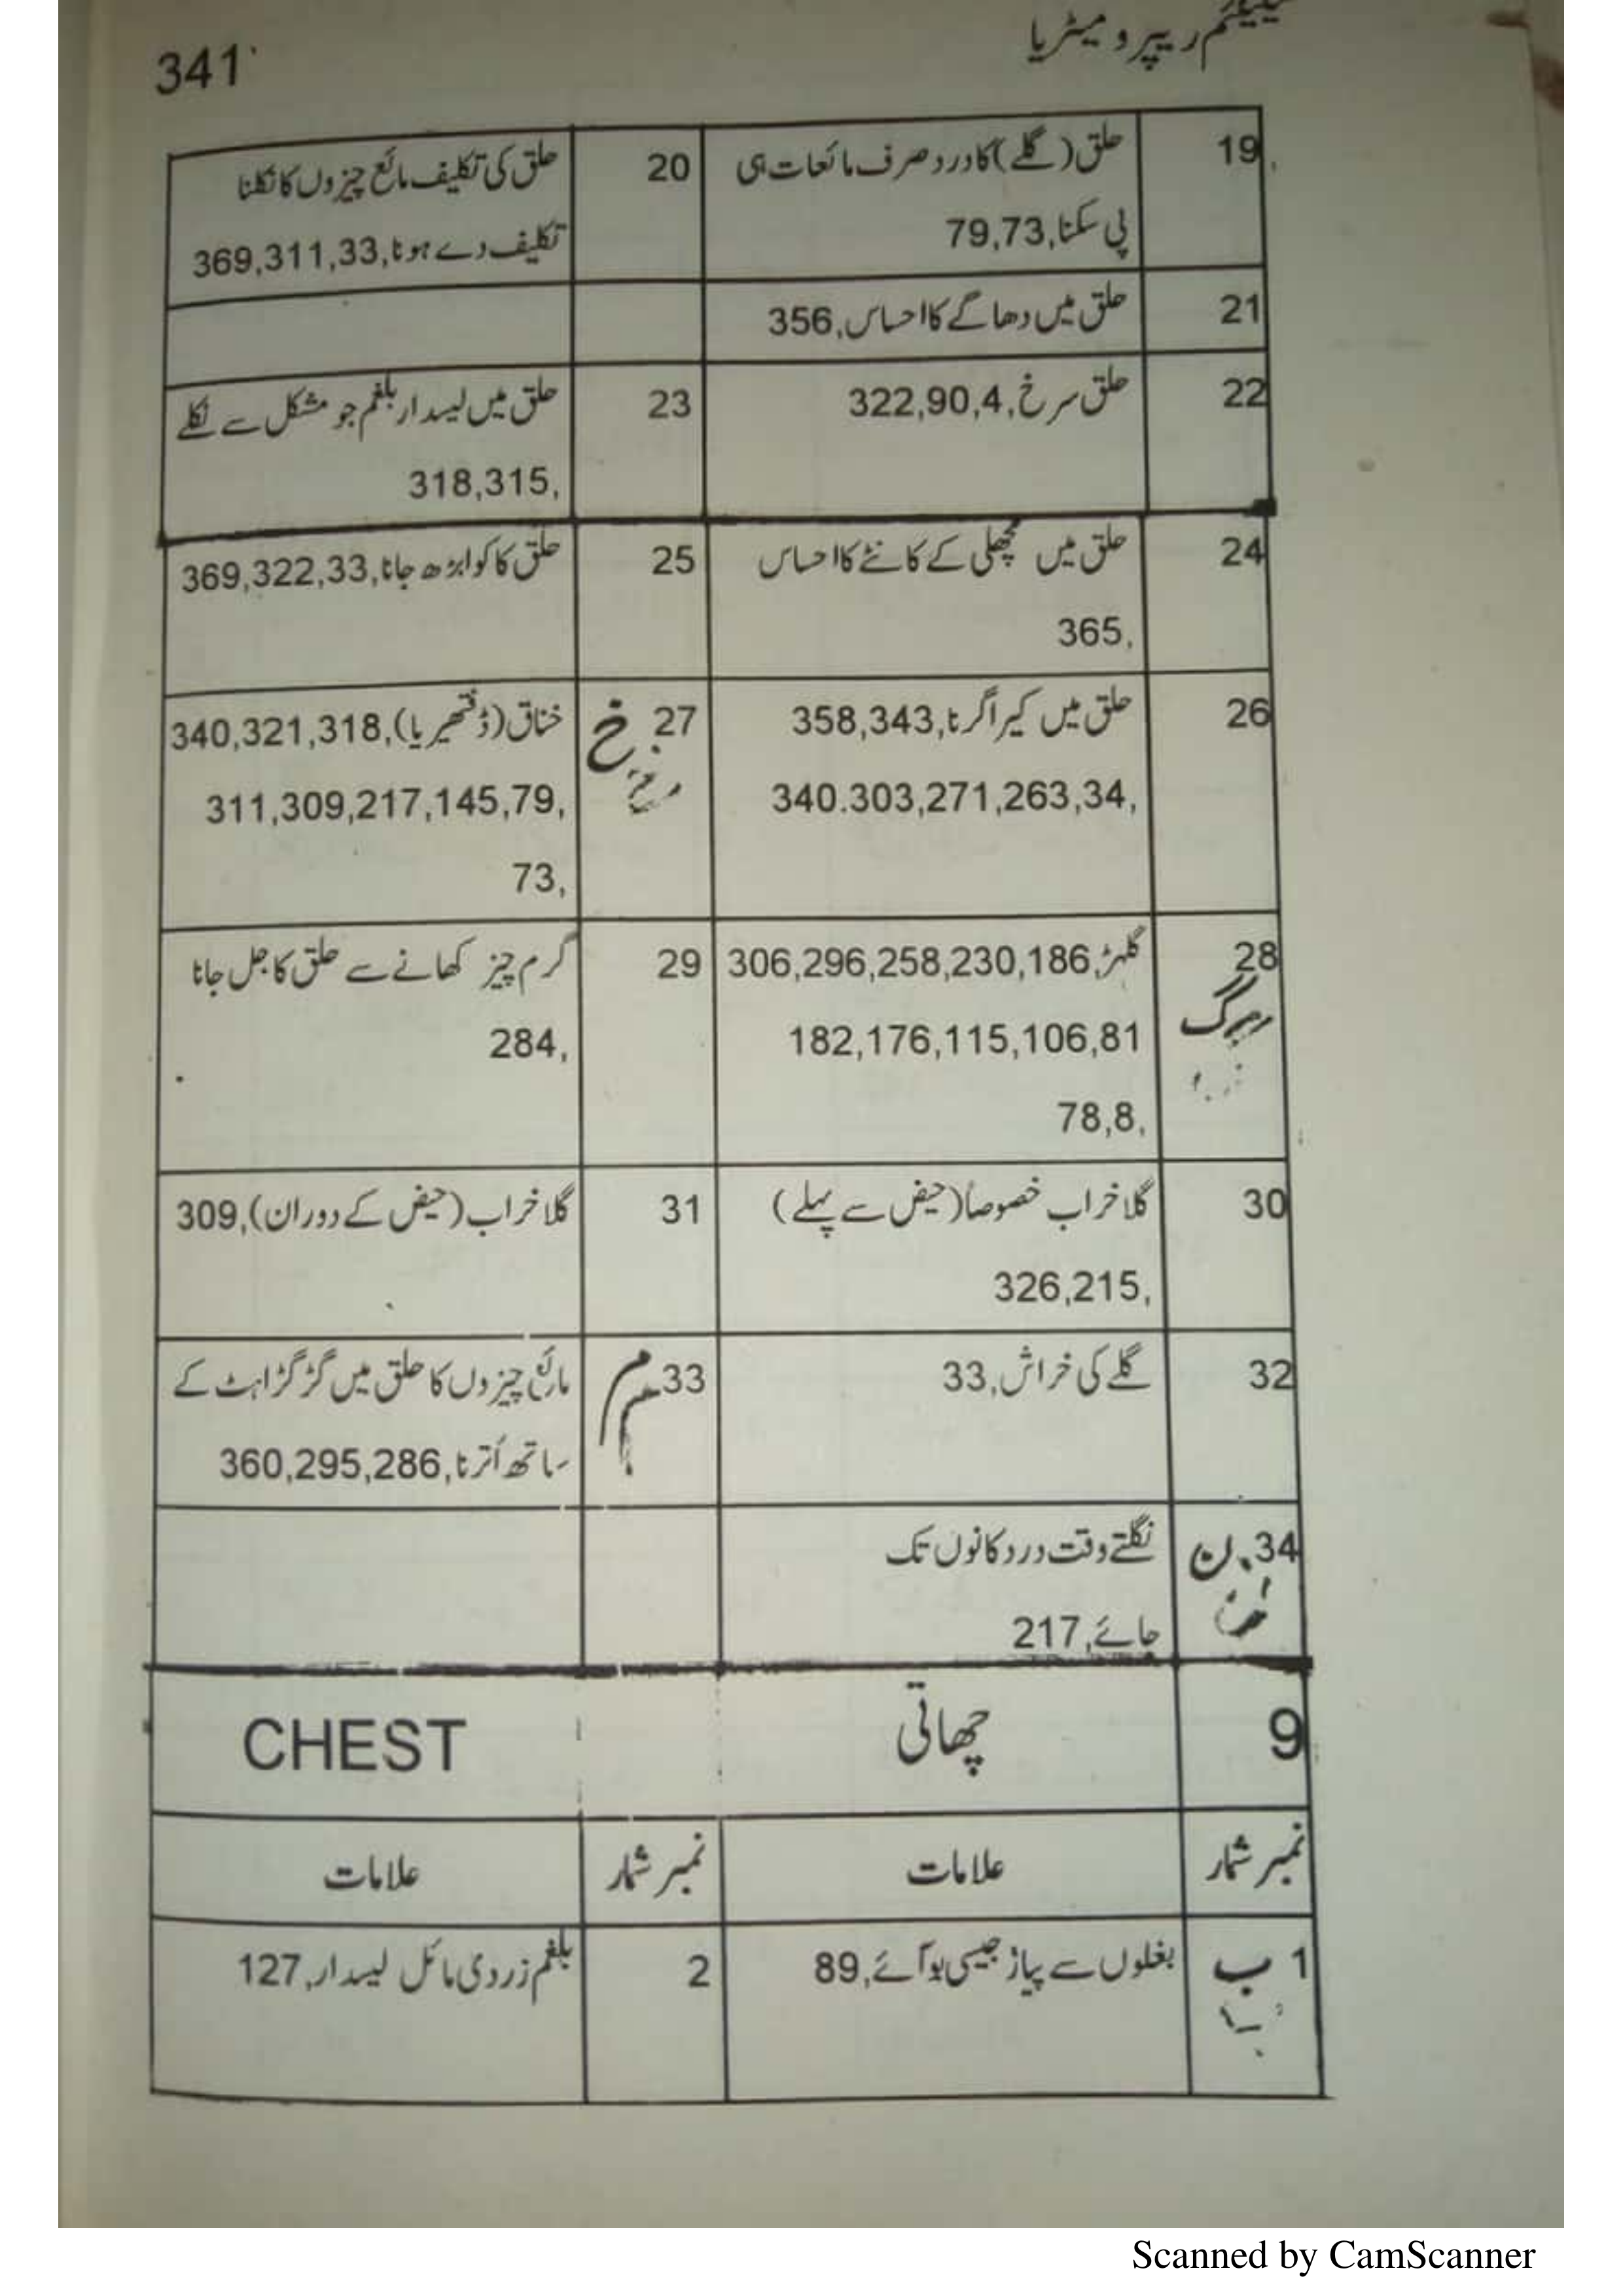 341
ریپرو میٹریا
19 حلق (گلے) کا درد صرف مائعات ہی
پی سکنا,79,73
20 حلق کی تکلیف مائع چیزوں کا نگلنا
تکلیف دے ہونا,369,311,33
21 حلق میں دھاگے کا احساس,356
22 حلق سرخ,322,90,4
23 حلق میں لیسدار بلغم جو مشکل سے نکلے
318,315,
24 حلق میں مچھلی کے کانٹے کا احساس
365,
25 حلق کا کوا بڑھ جانا,369,322,33
26 حلق میں کیرا گرنا,358,343
340.303,271,263,34,
27 خ
خناق (ڈفتھیریا),340,321,318
311,309,217,145,79,
73,
28 گ
گلہڑ,306,296,258,230,186
182,176,115,106,81
78,8,
29 گرم چیز کھانے سے حلق کا جل جانا
284,
30 گلا خراب خصوصاً (حیض سے پہلے)
326,215,
31 گلا خراب (حیض کے دوران),309
32 گلے کی خراش,33
33 م
مائع چیزوں کا حلق میں گڑگڑاہٹ کے
ساتھ اُترنا,360,295,286
34 ن
نگلتے وقت درد کانوں تک
جائے,217
9 چھاتی CHEST
نمبر شمار علامات نمبر شمار علامات
1 ب بغلوں سے پیاز جیسی بو آئے,89
2 بلغم زردی مائل لیسدار,127
Scanned by CamScanner